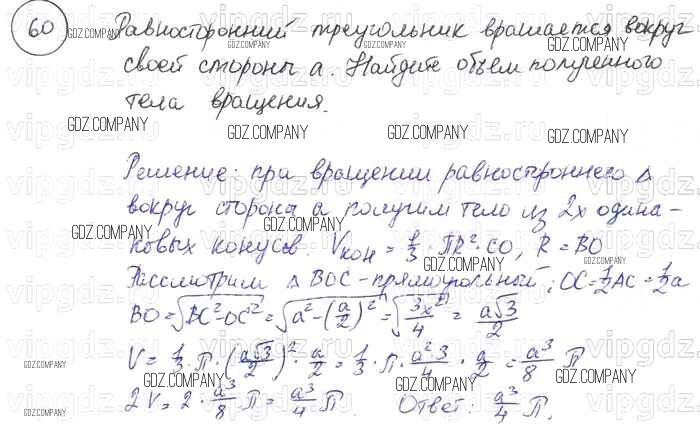 60 Равносторонний треугольник вращается вокруг
своей стороны а. Найдите объем полученного
тела вращения.
Решение: при вращении равностороннего Δ
вокруг стороны а получим тело из 2х одина-
ковых конусов. Vкон = 1/3 · ПR² · CO, R = BO
Рассмотрим Δ BOC - прямоугольный; OC = 1/2 AC = 1/2 a
BO = √(BC² - OC²) = √(a² - (a/2)²) = √(3x²/4) = a√3/2
V = 1/3 · П · (a√3/2)² · a/2 = 1/3 · П · a²·3/4 · a/2 = a³/8 П
2V = 2 · a³/8 П = a³/4 П. Ответ: a³/4 П.
GDZ.COMPANY
vipgdz.ru